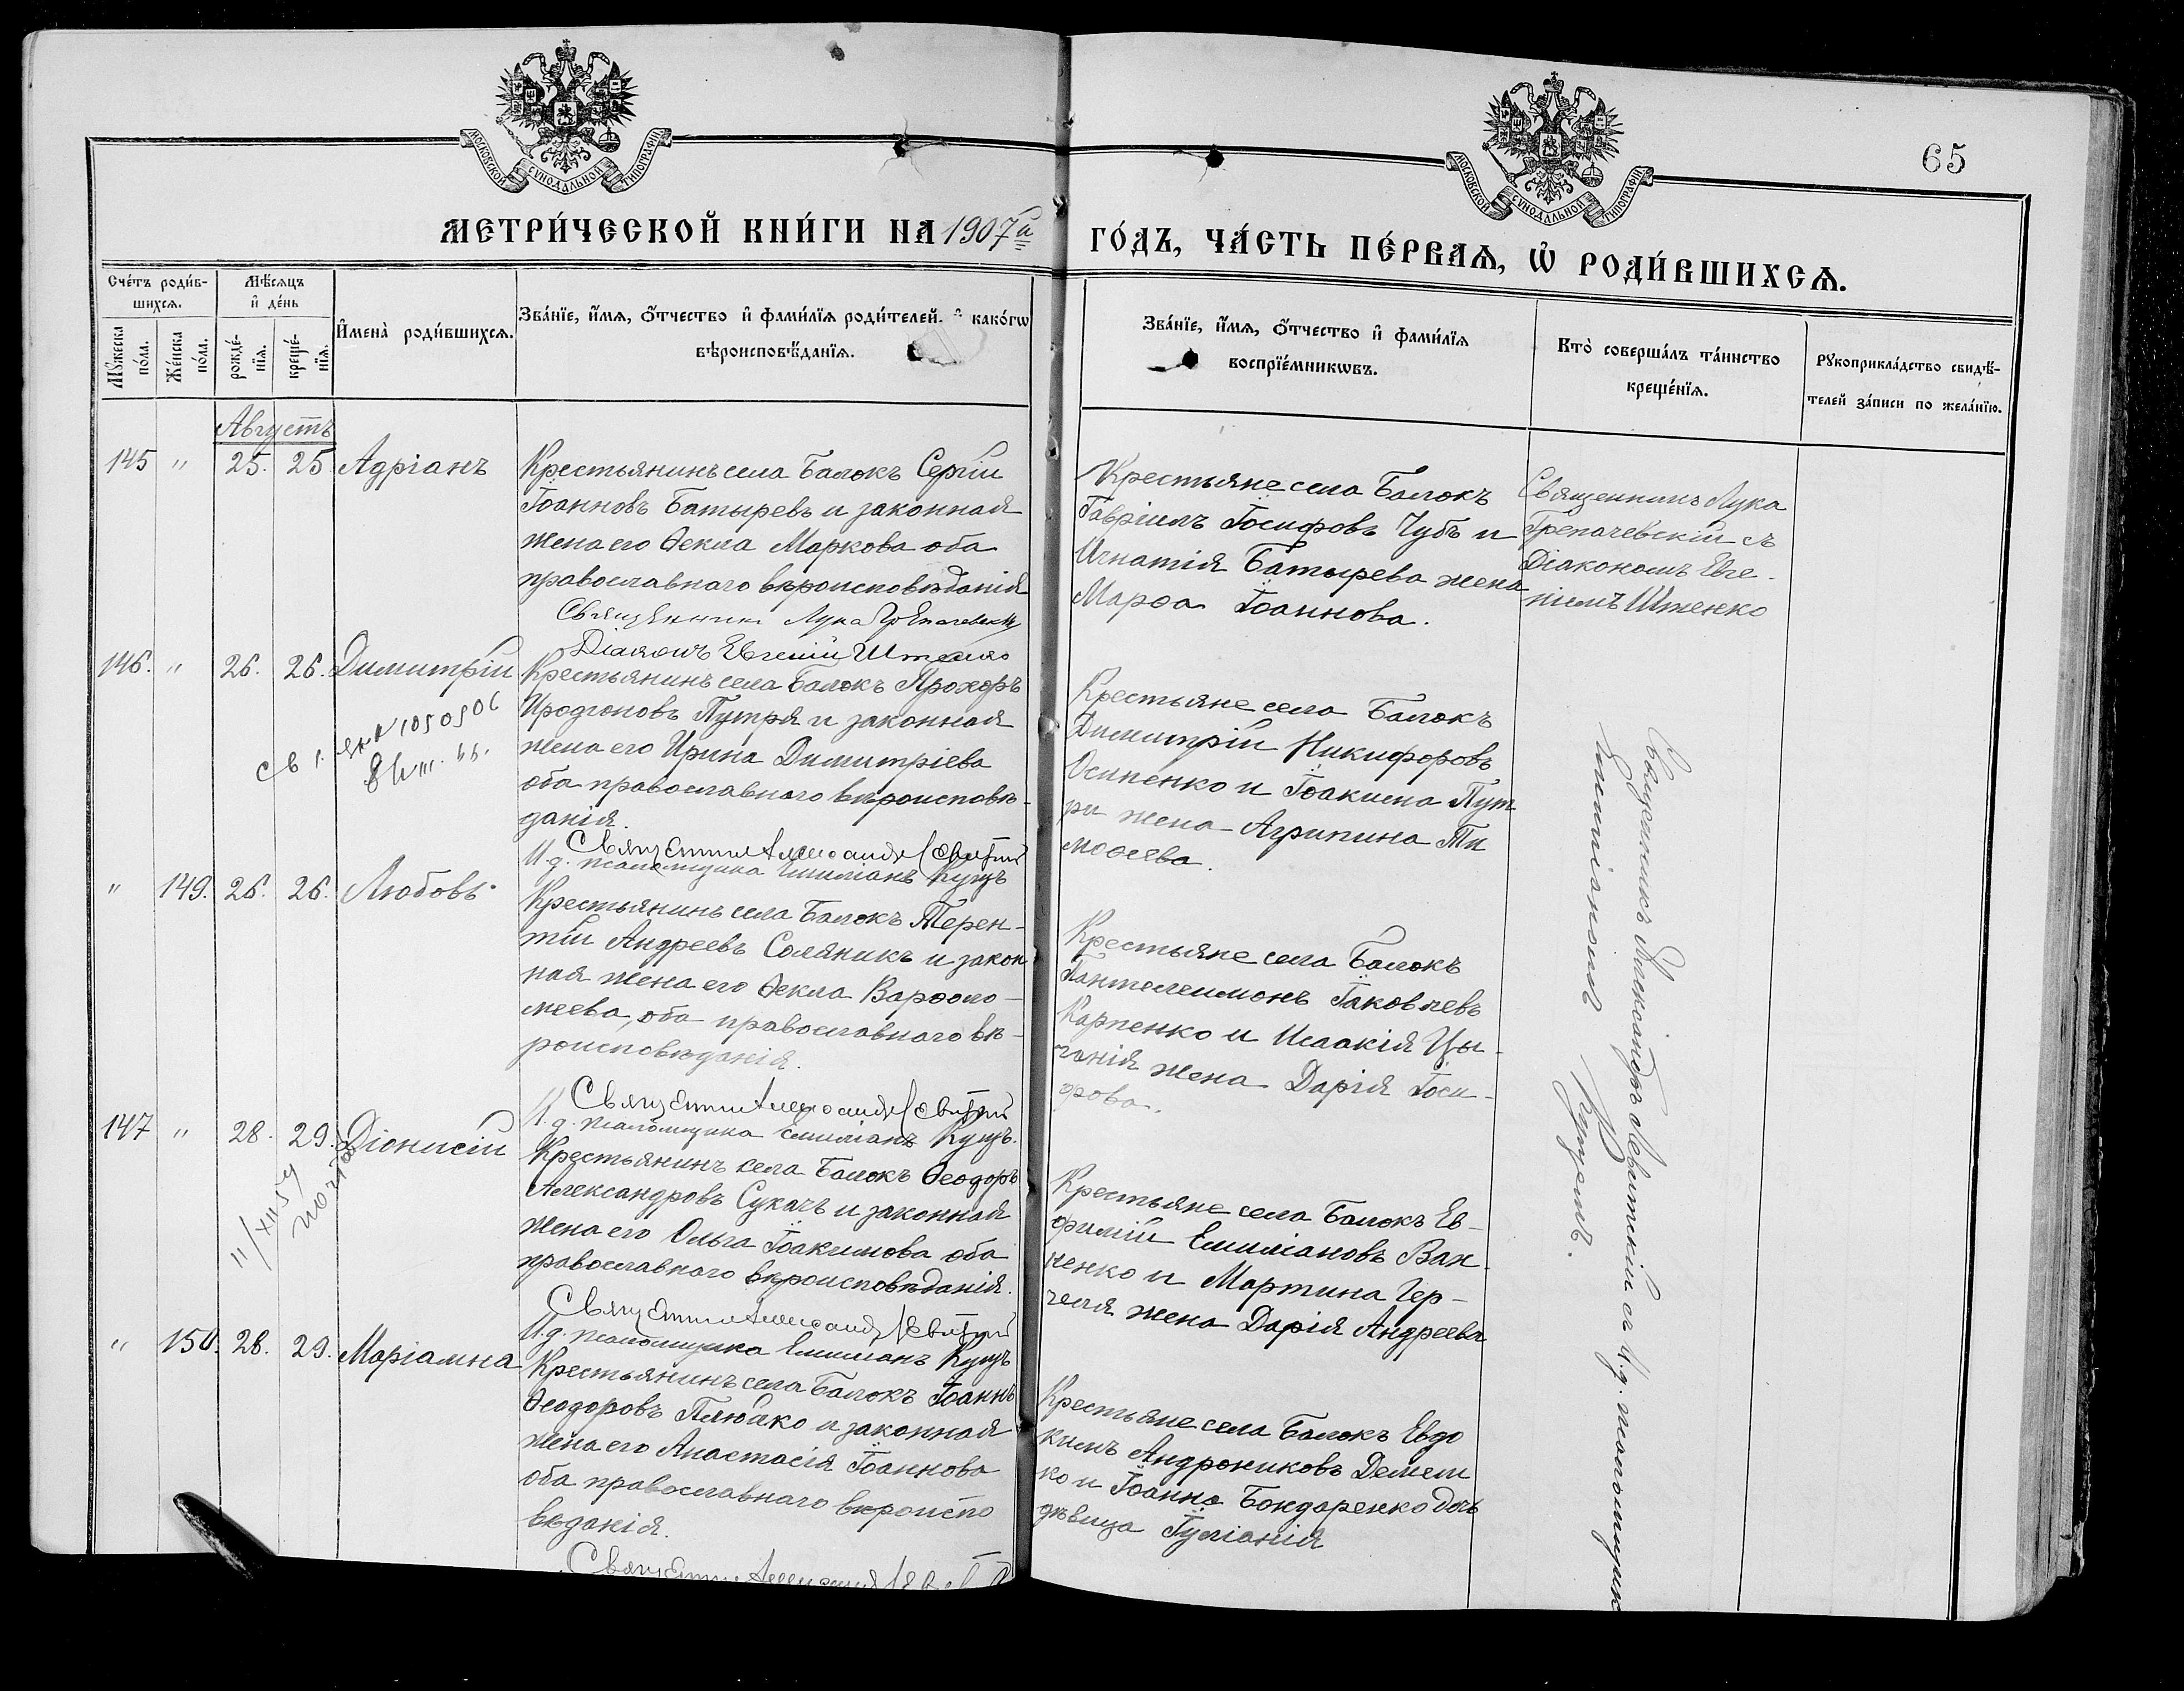 МОСКОВСКОЙ СѴНОДАЛЬНОЙ ТИПОГРАФІИ
МОСКОВСКОЙ СѴНОДАЛЬНОЙ ТИПОГРАФІИ
65
МЕТРИ́ЧЕСКОЙ КНИ́ГИ НА 1907й ГО́ДЪ, ЧА́СТЬ ПЕ́РВАѦ, Ѽ РОДИ́ВШИХСѦ.
Сче́тъ роди́в-
шихсѧ.
Мꙋжеска по́ла.
Же́нска по́ла.
Мѣ́сѧцъ
и҆ де́нь
рожде́-
нїѧ.
креще́-
нїѧ.
И҆мена̀ роди́вшихсѧ.
Зва́нїе, и҆́мѧ, ѻ҆́тчество и҆ фами́лїѧ роди́телей. и҆ како́гѡ
вѣроисповѣ́данїѧ.
Зва́нїе, и҆́мѧ, ѻ҆́тчество и҆ фами́лїѧ
воспрїе́мникѡвъ.
Кто̀ соверша́лъ та́инство
креще́нїѧ.
Рꙋкоприкла́дство свидѣ́-
телей за́писи по жела́нїю.
Августъ
145 " 25. 25. Адріанъ
Крестьянинъ села Балокъ Сергій
Іоанновъ Батыревъ и законная
жена его Ѳекла Маркова оба
православнаго вѣроисповѣданія
Священникъ Лука Грепачевскій
Діаконъ Евгеній Штенко
Крестьяне села Балокъ
Гавріилъ Іосифовъ Чубъ и
Игнатія Батырева жена
Марѳа Іоаннова.
Священникъ Лука
Грепачевскій съ
Діакономъ Евге-
ніемъ Штенко
146. " 26. 26. Димитрій
1050506
Крестьянинъ села Балокъ Прохоръ
Иродіоновъ Путря и законная
жена его Ирина Димитріева
оба православнаго вѣроисповѣ-
данія.
Священникъ Александръ Левитскій
И.д. псаломщика Емиліанъ Купцъ
Крестьяне села Балокъ
Димитрій Никифоровъ
Осипенко и Іоакима Пут
ри жена Агрипина Ти
моѳеева.
" 149. 26. 26. Любовь
Крестьянинъ села Балокъ Терен-
тій Андреевъ Соляникъ и закон
ная жена его Ѳекла Варѳоло-
меева, оба православнаго вѣ-
роисповѣданія.
Священникъ Александръ Левитскій
И.д. псаломщика Емиліанъ Купцъ.
Крестьяне села Балокъ
Пантелеимонъ Іаковлевъ
Карпенко и Исаакія Цы-
ганія жена Дарія Іоси-
фова.
147 " 28. 29. Діонисій
11/XII 59
Крестьянинъ села Балокъ Ѳеодоръ
Александровъ Сукачъ и законная
жена его Ольга Іоакимова оба
православнаго вѣроисповѣданія.
Священникъ Александръ Левитскій
И.д. псаломщика Емиліанъ Купцъ
Крестьяне села Балокъ Ев-
фимій Емиліановъ Вах-
ненко и Мартина Гер-
геля жена Дарія Андреева
" 150. 28. 29. Маріамна
Крестьянинъ села Балокъ Іоаннъ
Ѳеодоровъ Плюйко и законная
жена его Анастасія Іоаннова
оба православнаго вѣроиспо
вѣданія.
Священникъ Александръ
Крестьяне села Балокъ Евдо
кимъ Андрониковъ Демеш
ко и Іоанна Бондаренко дочь
дѣвица Іуліанія
Священникъ Александръ Левитскій съ И.д. псаломщика
Емиліаномъ Купцемъ.